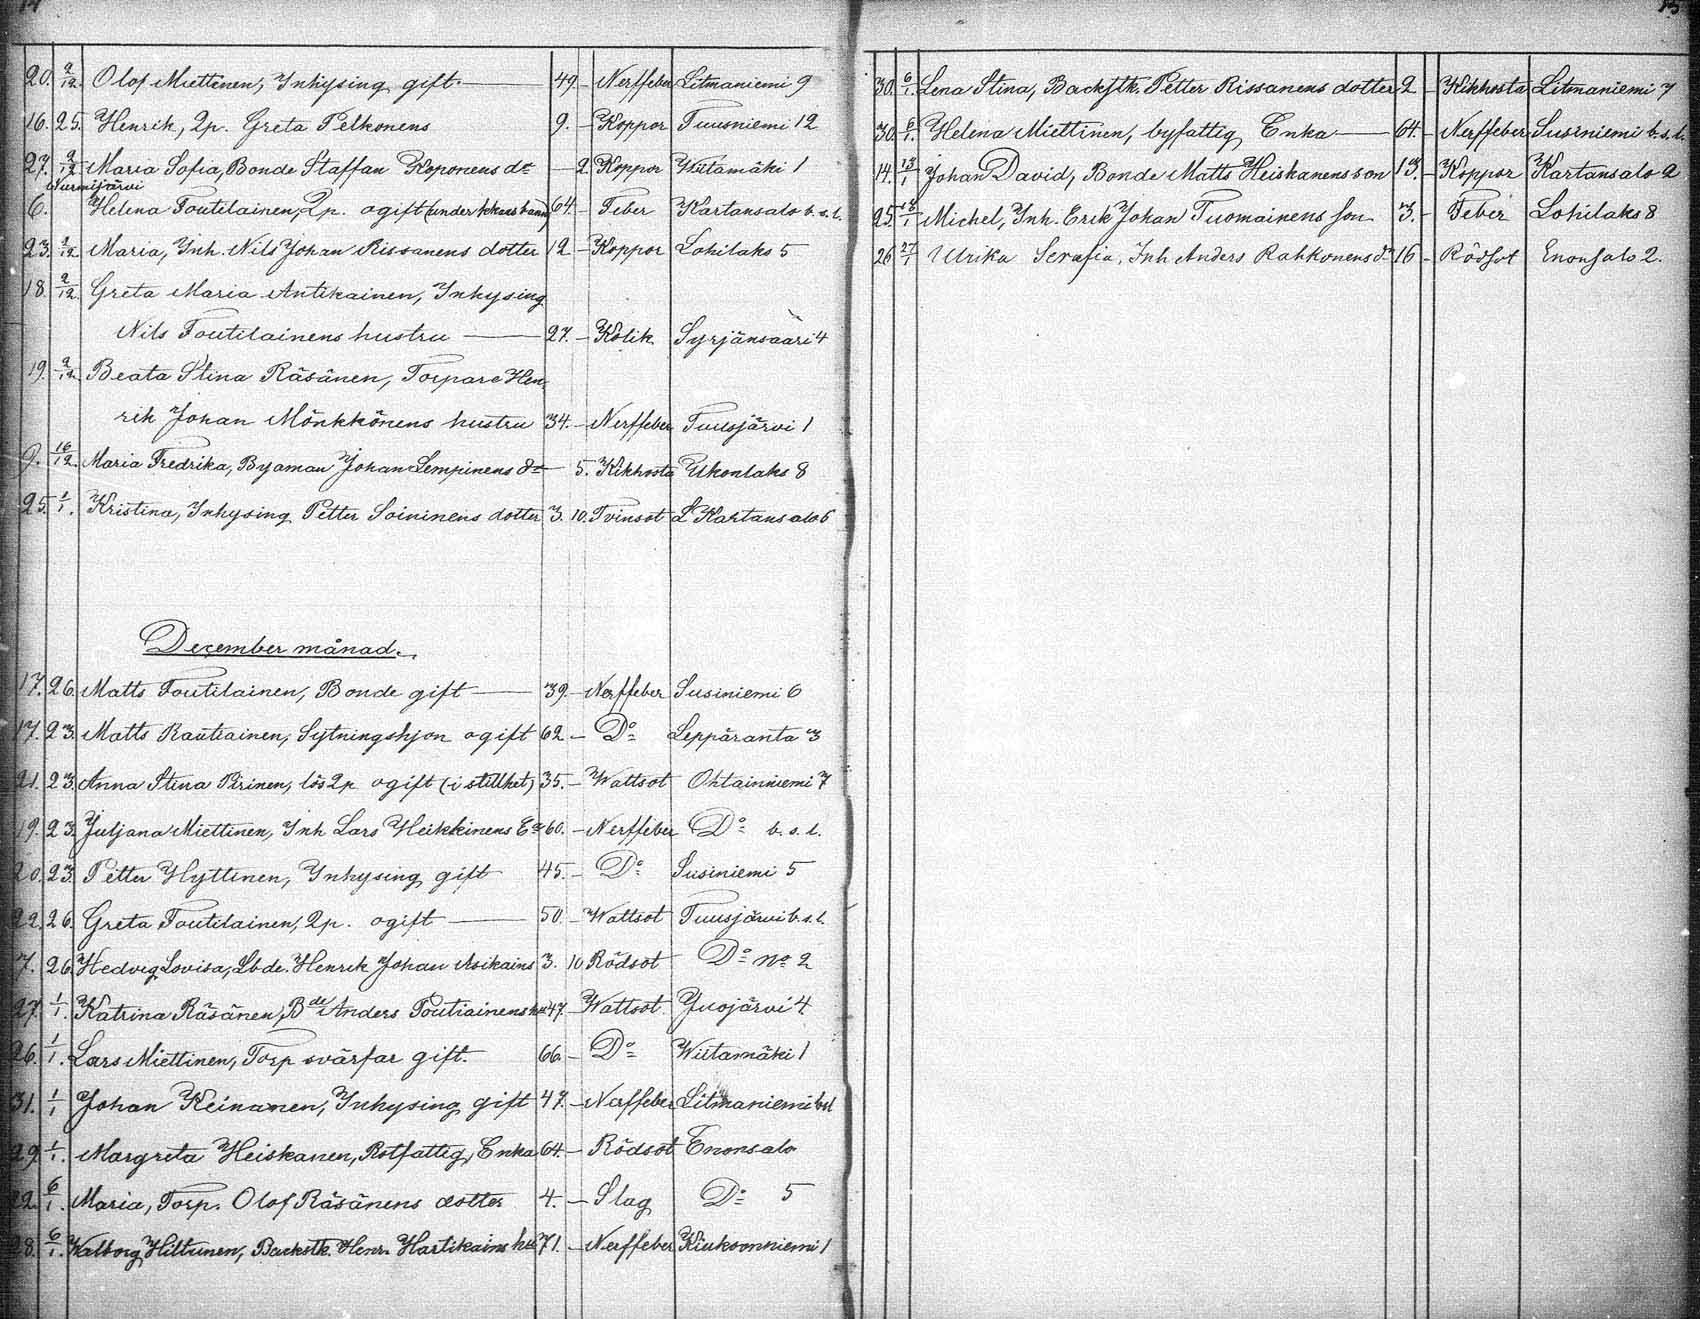 14
20. 2/12. Olof Miettinen, Inhysing gift. — 49. — Nerffeber Litmaniemi 9
16. 25. Henrik, Qp. Greta Pelkonens 9. — Koppor Tuusniemi 12
27. 2/12 Maria Sofia, Bonde Staffan Koponens dr — 2. Koppor Wiitamäki 1
Nurmijärvi
6. Helena Toutilainen, Qp. ogift 64. — Feber Kartansalo b. s. l.
23. 2/12 Maria, Inh. Nils Johan Rissanens dotter 12 — Koppor Lohilaks 5
18. 2/12. Greta Maria Antikainen, Inhysing
Nils Toutilainens hustru — 27. — Kolik Syrjänsaari 4
19. 2/12. Beata Stina Räsänen, Torpare Hen-
rik Johan Mönkkönens hustru 34. — Nerffeber Tuusjärvi 1
9. 16/12. Maria Fredrika, Byaman Johan Lempinens dr — 5. Kikhosta Ukonlaks 8
25. 1/1. Kristina, Inhysing Petter Soininens dotter 3. 10. Tvinsot Kartansalo 6
December månad.
17. 26. Matts Toutilainen, Bonde gift — 39. — Nerffeber Susiniemi 6
17. 23. Matts Rautiainen, Sytningshjon ogift 62 — Do Leppäranta 3
21. 23. Anna Stina Pirinen, lös Qp ogift (i stillhet) 35. — Wattsot Ohtainniemi 7
19. 23. Juljana Miettinen, Inh Lars Heikkinens Ea 60. — Nerffeber Do b. s. l.
20. 23. Petter Hyttinen, Inhysing gift 45. — Do Susiniemi 5
22. 26. Greta Toutilainen, Qp. ogift — 50. — Wattsot Tuusjärvi b. s. l.
7. 26. Hedvig Lovisa, Lbde. Henrik Johan Asikains 3. 10 Rödsot Do No 2
27. 1/1. Katrina Räsänen, Bde Anders Poutiainens hu 47. Wattsot Juojärvi 4
26. 1/1. Lars Miettinen, Torp svärfar gift. 66 — Do Wiitamäki 1
31. 1/1 Johan Keinanen, Inhysing gift 47. — Nerffeber Litmaniemi bsl
29. 1/1. Margreta Heiskanen, Rotfattig, Enka 64. — Rödsot Enonsalo
22. 6/1. Maria, Torp. Olof Räsänens dotter 4. — Slag Do 5
28. 6/1. Walborg Hiltunen, Backstk. Henr. Hartikains hu 71. — Nerffeber Kiukoonniemi 1
30. 6/1. Lena Stina, Backstk. Petter Rissanens dotter 2 — Kikhosta Litmaniemi 7
30. 6/1. Helena Miettinen, byfattig Enka — 64. — Nerffeber Susiniemi b. s. l.
14. 13/1 Johan David, Bonde Matts Heiskanens son 13. — Koppor Kartansalo 2
25. 13/1 Michel, Inh. Erik Johan Tuomainens son 3. — Feber Lohilaks 8
26 27/1 Ulrika Serafia, Inh Anders Rahkonens dr 16 — Rödsot Enonsalo 2.